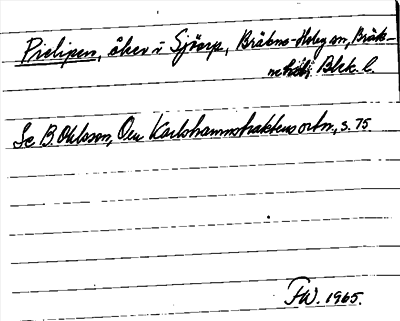 Pielipen, åker i Sjöarp, Bräkne-Hoby sn, Bräk-
ne hd; Blek. l.
Se B. Ohlsson, Om Karlshamnstraktens ortn., s. 75
FW. 1965.